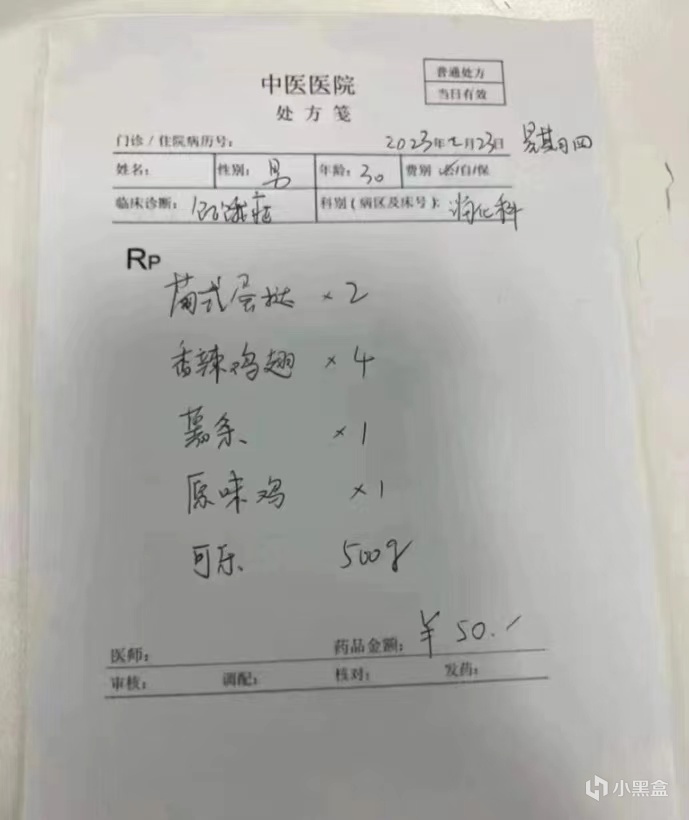 中医医院
处方笺
普通处方
当日有效
门诊/住院病历号:
2023年2月23日 星期四
姓名: 性别: 男 年龄: 30 费别 公/自/保
临床诊断: 饥饿症 科别(病区及床号): 消化科
RP
葡式蛋挞 ×2
香辣鸡翅 ×4
薯条 ×1
原味鸡 ×1
可乐 500g
医师: 药品金额: ¥50.
审核: 调配: 核对: 发药:
小黑盒